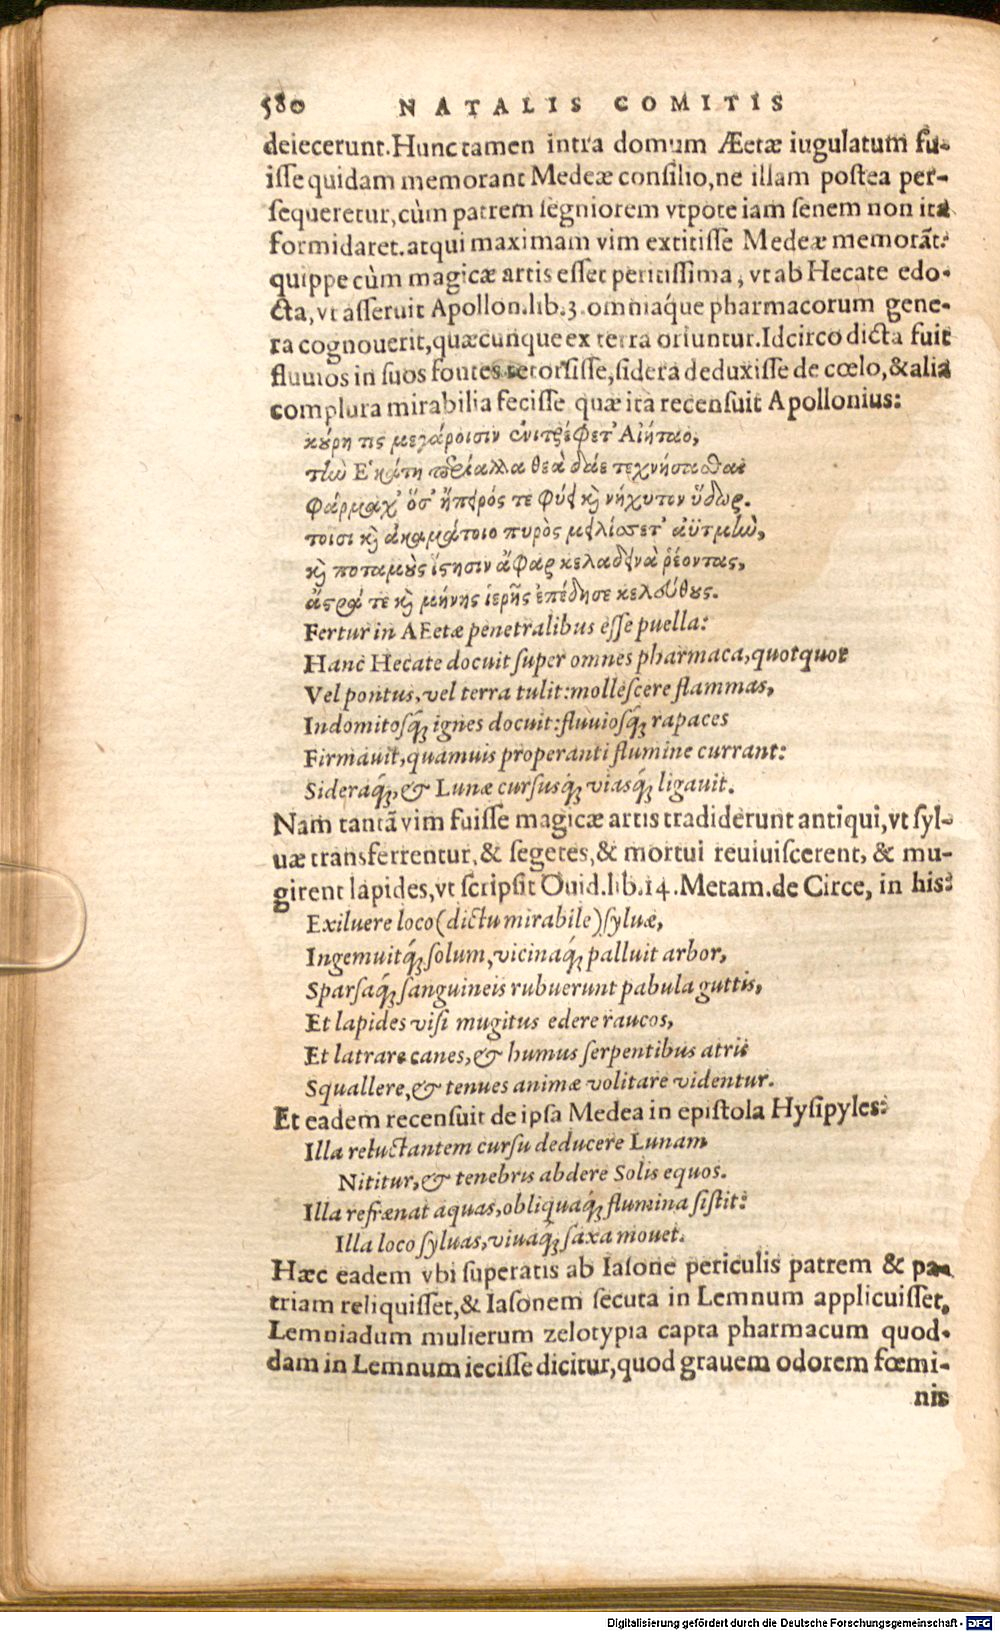 580 NATALIS COMITIS
deiecerunt. Hunc tamen intra domum Æetæ iugulatum fu-
isse quidam memorant Medeæ consilio, ne illam postea per-
sequeretur, cùm patrem segniorem vtpote iam senem non ita
formidaret. atqui maximam vim extitisse Medeæ memorãt:
quippe cùm magicæ artis esset peritissima, vt ab Hecate edo-
cta, vt asseruit Apollon. lib. 3. omniaq́ue pharmacorum gene-
ra cognouerit, quæcunque ex terra oriuntur. Idcirco dicta fuit
fluuios in suos fontes retorsisse, sidera deduxisse de cœlo, & alia
complura mirabilia fecisse quæ ita recensuit Apollonius:
κούρη τις μεγάροισιν ἐνιτρέφετ' Αἰήταο,
τὴν Ἑκάτη περίαλλα θεὰ δάε τεχνήσασθαι
φάρμαχ' ὅσ' ἤπειρός τε φύει καὶ νήχυτον ὕδωρ.
τοισι καὶ ἀκαμάτοιο πυρὸς μειλίσσετ' ἀϋτμὴν,
καὶ ποταμοὺς ἵστησιν ἄφαρ κελαδεινὰ ῥέοντας,
ἄστρά τε καὶ μήνης ἱερῆς ἐπέδησε κελεύθους.
Fertur in AEetæ penetralibus esse puella:
Hanc Hecate docuit super omnes pharmaca, quotquot
Vel pontus, vel terra tulit: mollescere flammas,
Indomitosq́; ignes docuit: fluuiosq́; rapaces
Firmauit, quamuis properanti flumine currant:
Sideraq́;, & Lunæ cursusq́; viasq́; ligauit.
Nam tantã vim fuisse magicæ artis tradiderunt antiqui, vt syl-
uæ transferrentur, & segetes, & mortui reuiuiscerent, & mu-
girent lapides, vt scripsit Ouid. lib. 14. Metam. de Circe, in his:
Exiluere loco (dictu mirabile) syluæ,
Ingemuitq́; solum, vicinaq́; palluit arbor,
Sparsaq́; sanguineis rubuerunt pabula guttis,
Et lapides visi mugitus edere raucos,
Et latrare canes, & humus serpentibus atris
Squallere, & tenues animæ volitare videntur.
Et eadem recensuit de ipsa Medea in epistola Hysipyles:
Illa reluctantem cursu deducere Lunam
Nititur, & tenebris abdere Solis equos.
Illa refrænat aquas, obliquaq́; flumina sistit:
Illa loco syluas, viuaq́; saxa mouet.
Hæc eadem vbi superatis ab Iasone periculis patrem & pa-
triam reliquisset, & Iasonem secuta in Lemnum applicuisset,
Lemniadum mulierum zelotypia capta pharmacum quod-
dam in Lemnum iecisse dicitur, quod grauem odorem fœmi-
nis
Digitalisierung gefördert durch die Deutsche Forschungsgemeinschaft - DFG